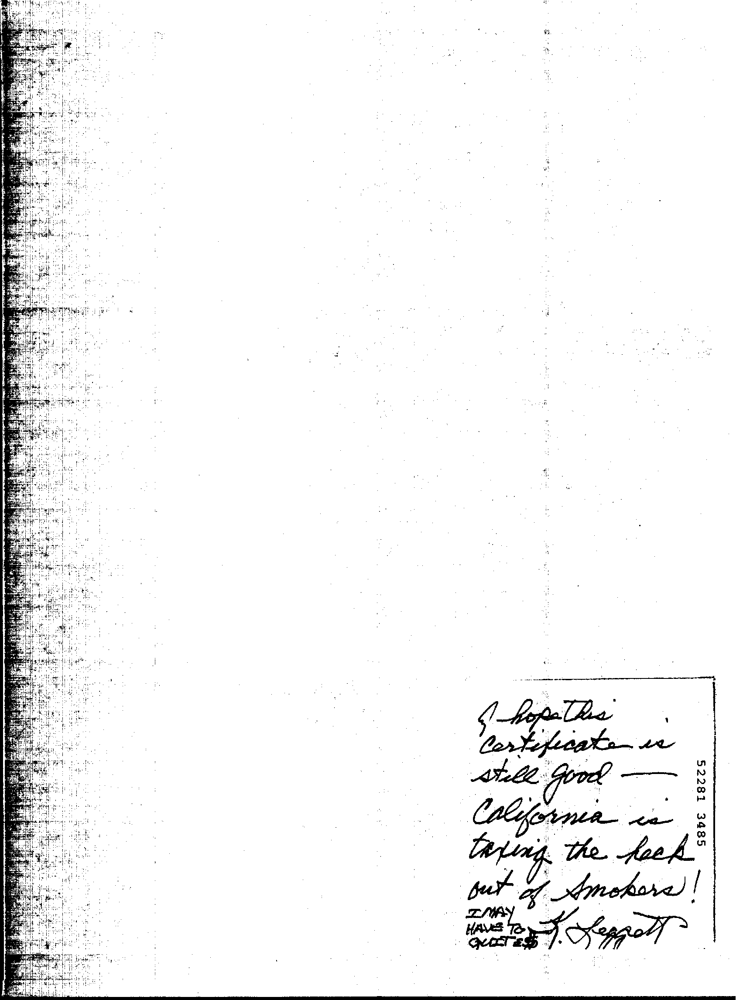 I hope this
Certificate is
still good —
California is
taxing the heck
out of Smokers!
I MAY
HAVE TO
K. Leggett
52281 3485